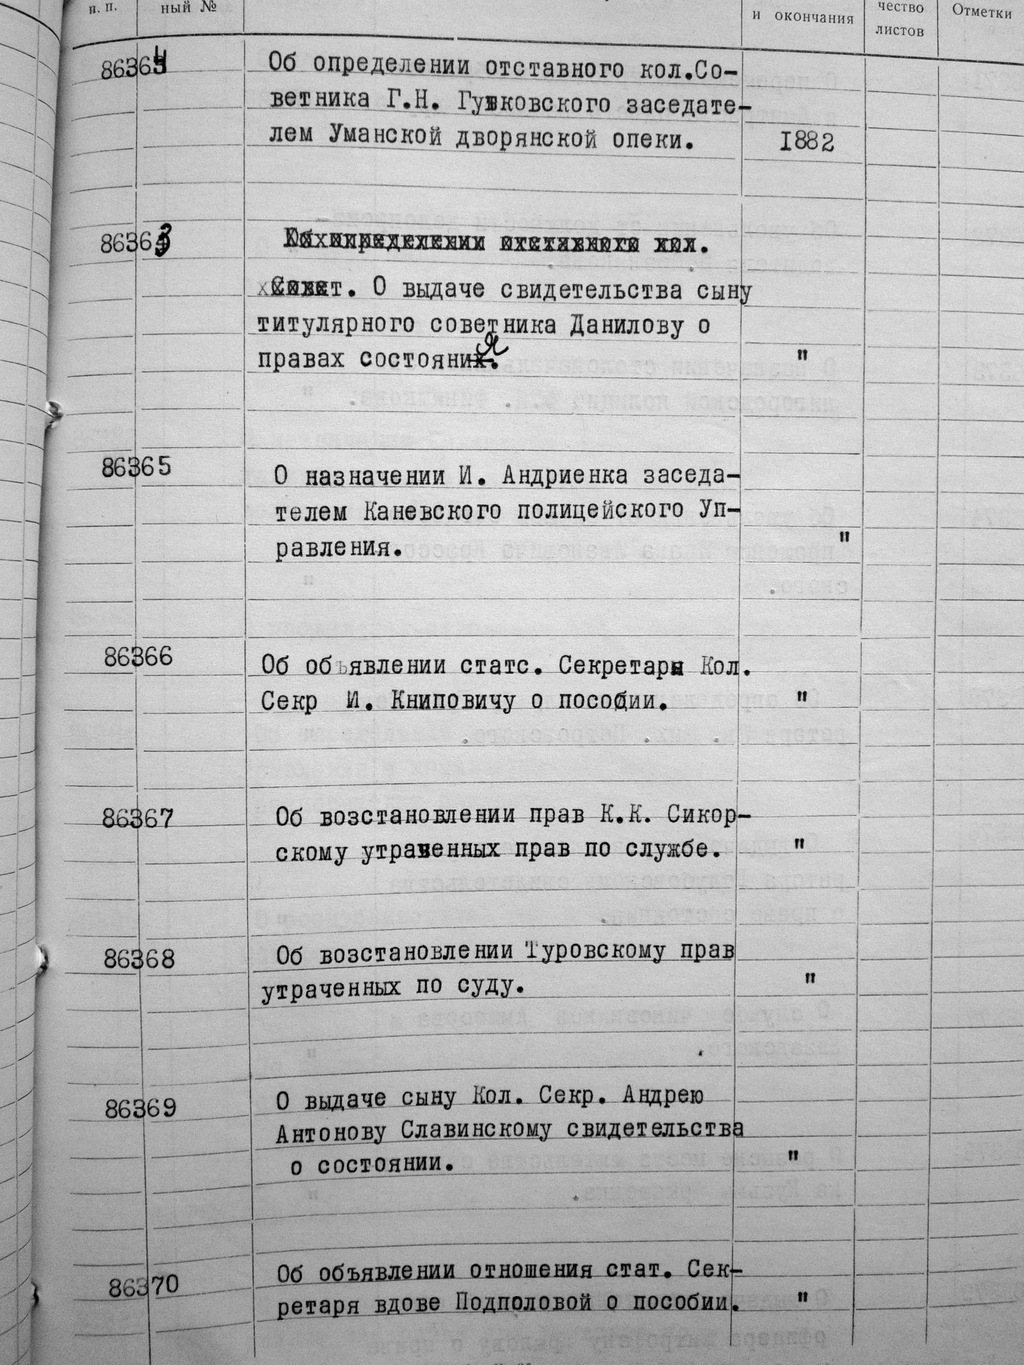 п. п.
ный №
и окончания
чество
листов
Отметки
86364
Об определении отставного кол.Со-
ветника Г.Н. Гувковского заседате-
лем Уманской дворянской опеки.
1882
86363
Об определении отставного кол.
Совет. О выдаче свидетельства сыну
титулярного советника Данилову о
правах состояния.
"
86365
О назначении И. Андриенка заседа-
телем Каневского полицейского Уп-
равления.
"
86366
Об объявлении статс. Секретаря Кол.
Секр И. Книповичу о пособии.
"
86367
Об возстановлении прав К.К. Сикор-
скому утраченных прав по службе.
"
86368
Об возстановлении Туровскому прав
утраченных по суду.
"
86369
О выдаче сыну Кол. Секр. Андрею
Антонову Славинскому свидетельства
о состоянии.
"
86370
Об объявлении отношения стат. Сек-
ретаря вдове Подполовой о пособии.
"